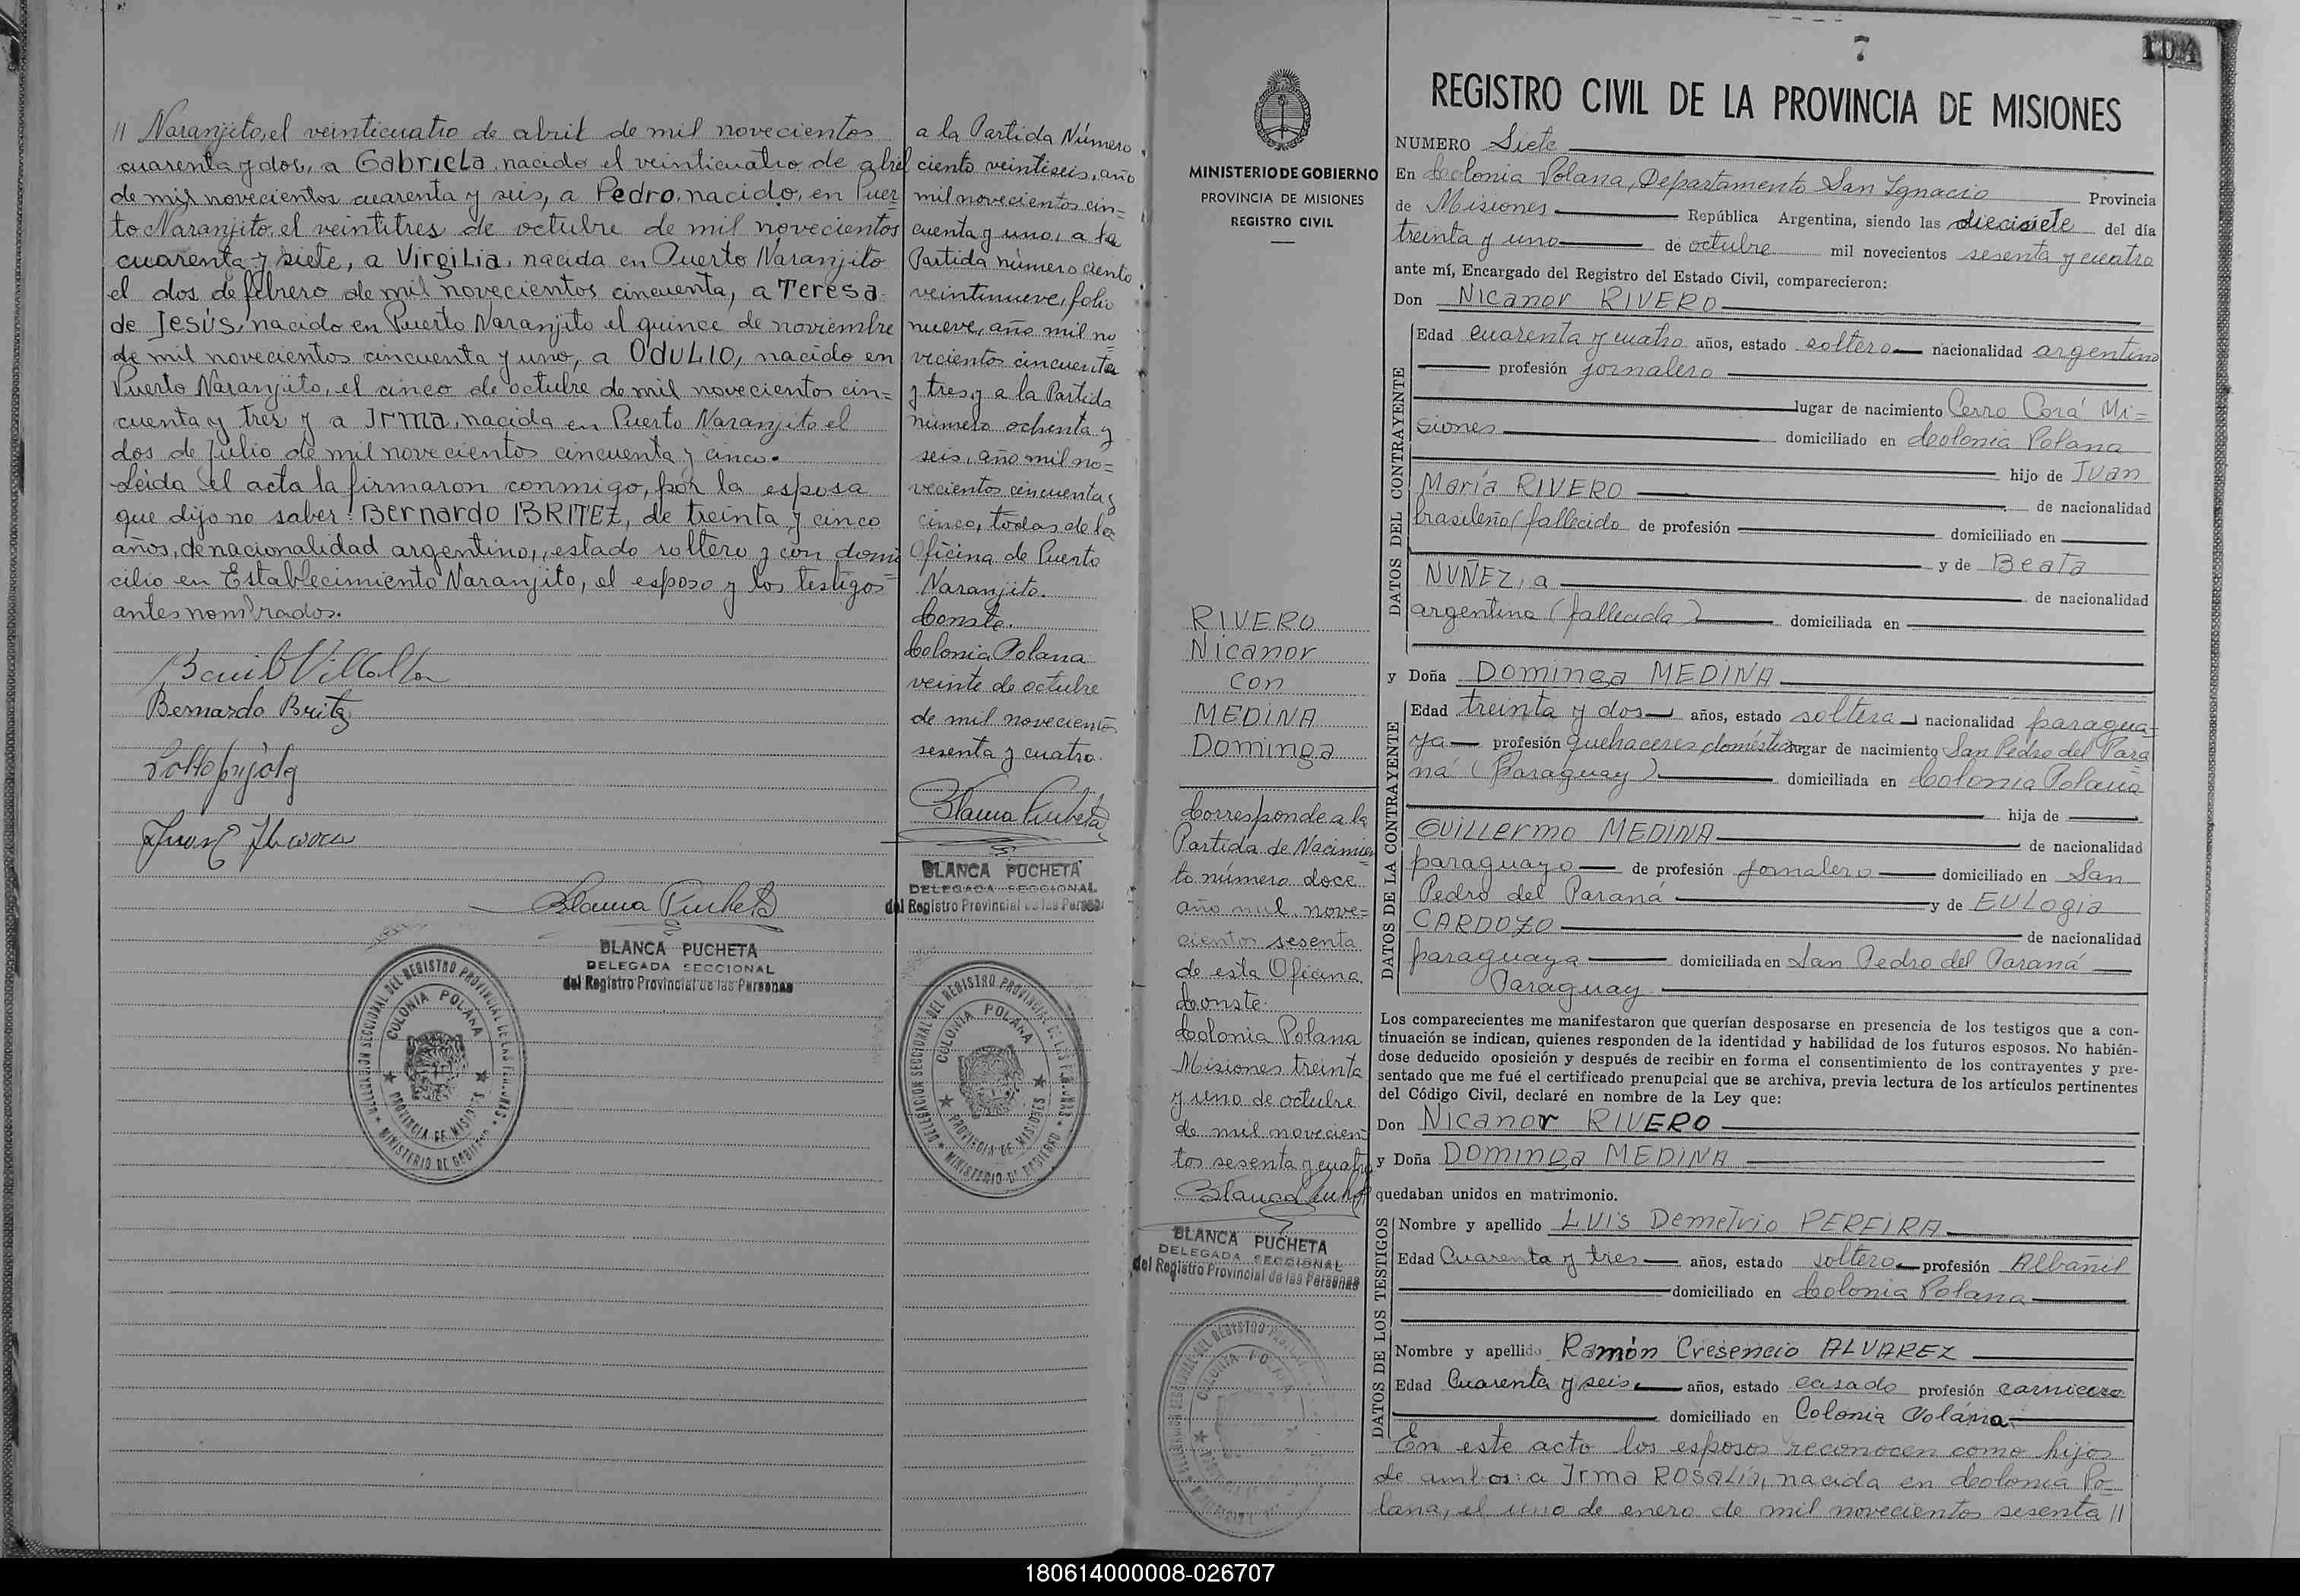 // Naranjito, el veinticuatro de abril de mil novecientos
cuarenta y dos, a Gabriela, nacido el veinticuatro de abril
de mil novecientos cuarenta y seis, a Pedro, nacido, en Puer
to Naranjito, el veintitres de octubre de mil novecientos
cuarenta y siete, a Virgilia, nacida en Puerto Naranjito
el dos de febrero de mil novecientos cincuenta, a Teresa
de Jesús, nacido en Puerto Naranjito el quince de noviembre
de mil novecientos cincuenta y uno, a ODULIO, nacido en
Puerto Naranjito, el cinco de octubre de mil novecientos cin=
cuenta y tres y a Irma, nacida en Puerto Naranjito el
dos de Julio de mil novecientos cincuenta y cinco.
Leída el acta la firmaron conmigo, por la esposa
que dijo no saber: Bernardo BRITEZ, de treinta y cinco
años, de nacionalidad argentino, estado soltero y con domi
cilio en Establecimiento Naranjito, el esposo y los testigos=
antes nombrados.
Bernardo Britez
Blanca Pucheta
BLANCA PUCHETA
DELEGADA SECCIONAL
del Registro Provincial de las Personas
DELEGACION SECCIONAL DEL REGISTRO PROVINCIAL DE LAS PERSONAS
COLONIA POLANA
PROVINCIA DE MISIONES
MINISTERIO DE GOBIERNO
a la Partida Número
ciento veintiseis, año
mil novecientos cin=
cuenta y uno, a la
Partida número ciento
veintinueve, folio
nueve, año mil no
vecientos cincuenta
y tres, y a la Partida
número ochenta y
seis, año mil no=
vecientos cincuenta y
cinco, todas de la
Oficina de Puerto
Naranjito.
Conste.
Colonia Polana
veinte de octubre
de mil novecientos
sesenta y cuatro.
Blanca Pucheta
BLANCA PUCHETA
DELEGADA SECCIONAL
del Registro Provincial de las Personas
DELEGACION SECCIONAL DEL REGISTRO PROVINCIAL DE LAS PERSONAS
COLONIA POLANA
PROVINCIA DE MISIONES
MINISTERIO DE GOBIERNO
MINISTERIO DE GOBIERNO
PROVINCIA DE MISIONES
REGISTRO CIVIL
RIVERO
Nicanor
con
MEDINA
Dominga
Corresponde a la
Partida de Nacimien
to número doce
año mil nove=
cientos sesenta
de esta Oficina
Conste.
Colonia Polana
Misiones treinta
y uno de octubre
de mil novecien
tos sesenta y cuatro
Blanca Pucheta
BLANCA PUCHETA
DELEGADA SECCIONAL
del Registro Provincial de las Personas
7
104
REGISTRO CIVIL DE LA PROVINCIA DE MISIONES
NUMERO Siete
En Colonia Polana, Departamento San Ignacio Provincia
de Misiones República Argentina, siendo las diecisiete del día
treinta y uno de octubre mil novecientos sesenta y cuatro
ante mí, Encargado del Registro del Estado Civil, comparecieron:
Don Nicanor RIVERO
DATOS DEL CONTRAYENTE
Edad cuarenta y cuatro años, estado soltero nacionalidad argentino
profesión jornalero
lugar de nacimiento Cerro Corá Mi=
siones domiciliado en Colonia Polana
hijo de Juan
María RIVERO de nacionalidad
brasileño (fallecido de profesión domiciliado en
y de Beata
NUÑEZ, a de nacionalidad
argentina (fallecida) domiciliada en
y Doña Dominga MEDINA
DATOS DE LA CONTRAYENTE
Edad treinta y dos años, estado soltera nacionalidad paragua=
ya profesión quehaceres domésticos lugar de nacimiento San Pedro del Para
ná (Paraguay) domiciliada en Colonia Polana
hija de
Guillermo MEDINA de nacionalidad
paraguayo de profesión jornalero domiciliado en San
Pedro del Paraná y de Eulogia
CARDOZO de nacionalidad
paraguaya domiciliada en San Pedro del Paraná
Paraguay
Los comparecientes me manifestaron que querían desposarse en presencia de los testigos que a con-
tinuación se indican, quienes responden de la identidad y habilidad de los futuros esposos. No habién-
dose deducido oposición y después de recibir en forma el consentimiento de los contrayentes y pre-
sentado que me fué el certificado prenupcial que se archiva, previa lectura de los artículos pertinentes
del Código Civil, declaré en nombre de la Ley que:
Don Nicanor RIVERO
y Doña Dominga MEDINA
quedaban unidos en matrimonio.
DATOS DE LOS TESTIGOS
Nombre y apellido Luis Demetrio PEREIRA
Edad Cuarenta y tres años, estado soltero profesión Albañil
domiciliado en Colonia Polana
Nombre y apellido Ramón Cresencio ALVAREZ
Edad Cuarenta y seis años, estado casado profesión carnicero
domiciliado en Colonia Polana
En este acto los esposos reconocen como hijos
de ambos: a Irma Rosalía, nacida en Colonia Po=
lana, el uno de enero de mil novecientos sesenta //
180614000008-026707